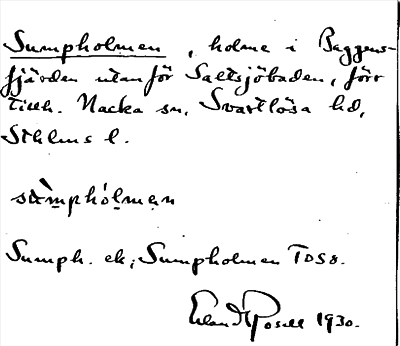 Sumpholmen, holme i Baggens-
fjärden utanför Saltsjöbaden, förr
tillh. Nacka sn, Svartlösa hd,
Sthlms l.
sùmphólmen
Sumph. ek; Sumpholmen TOS8.
Erland Rosell 1930.